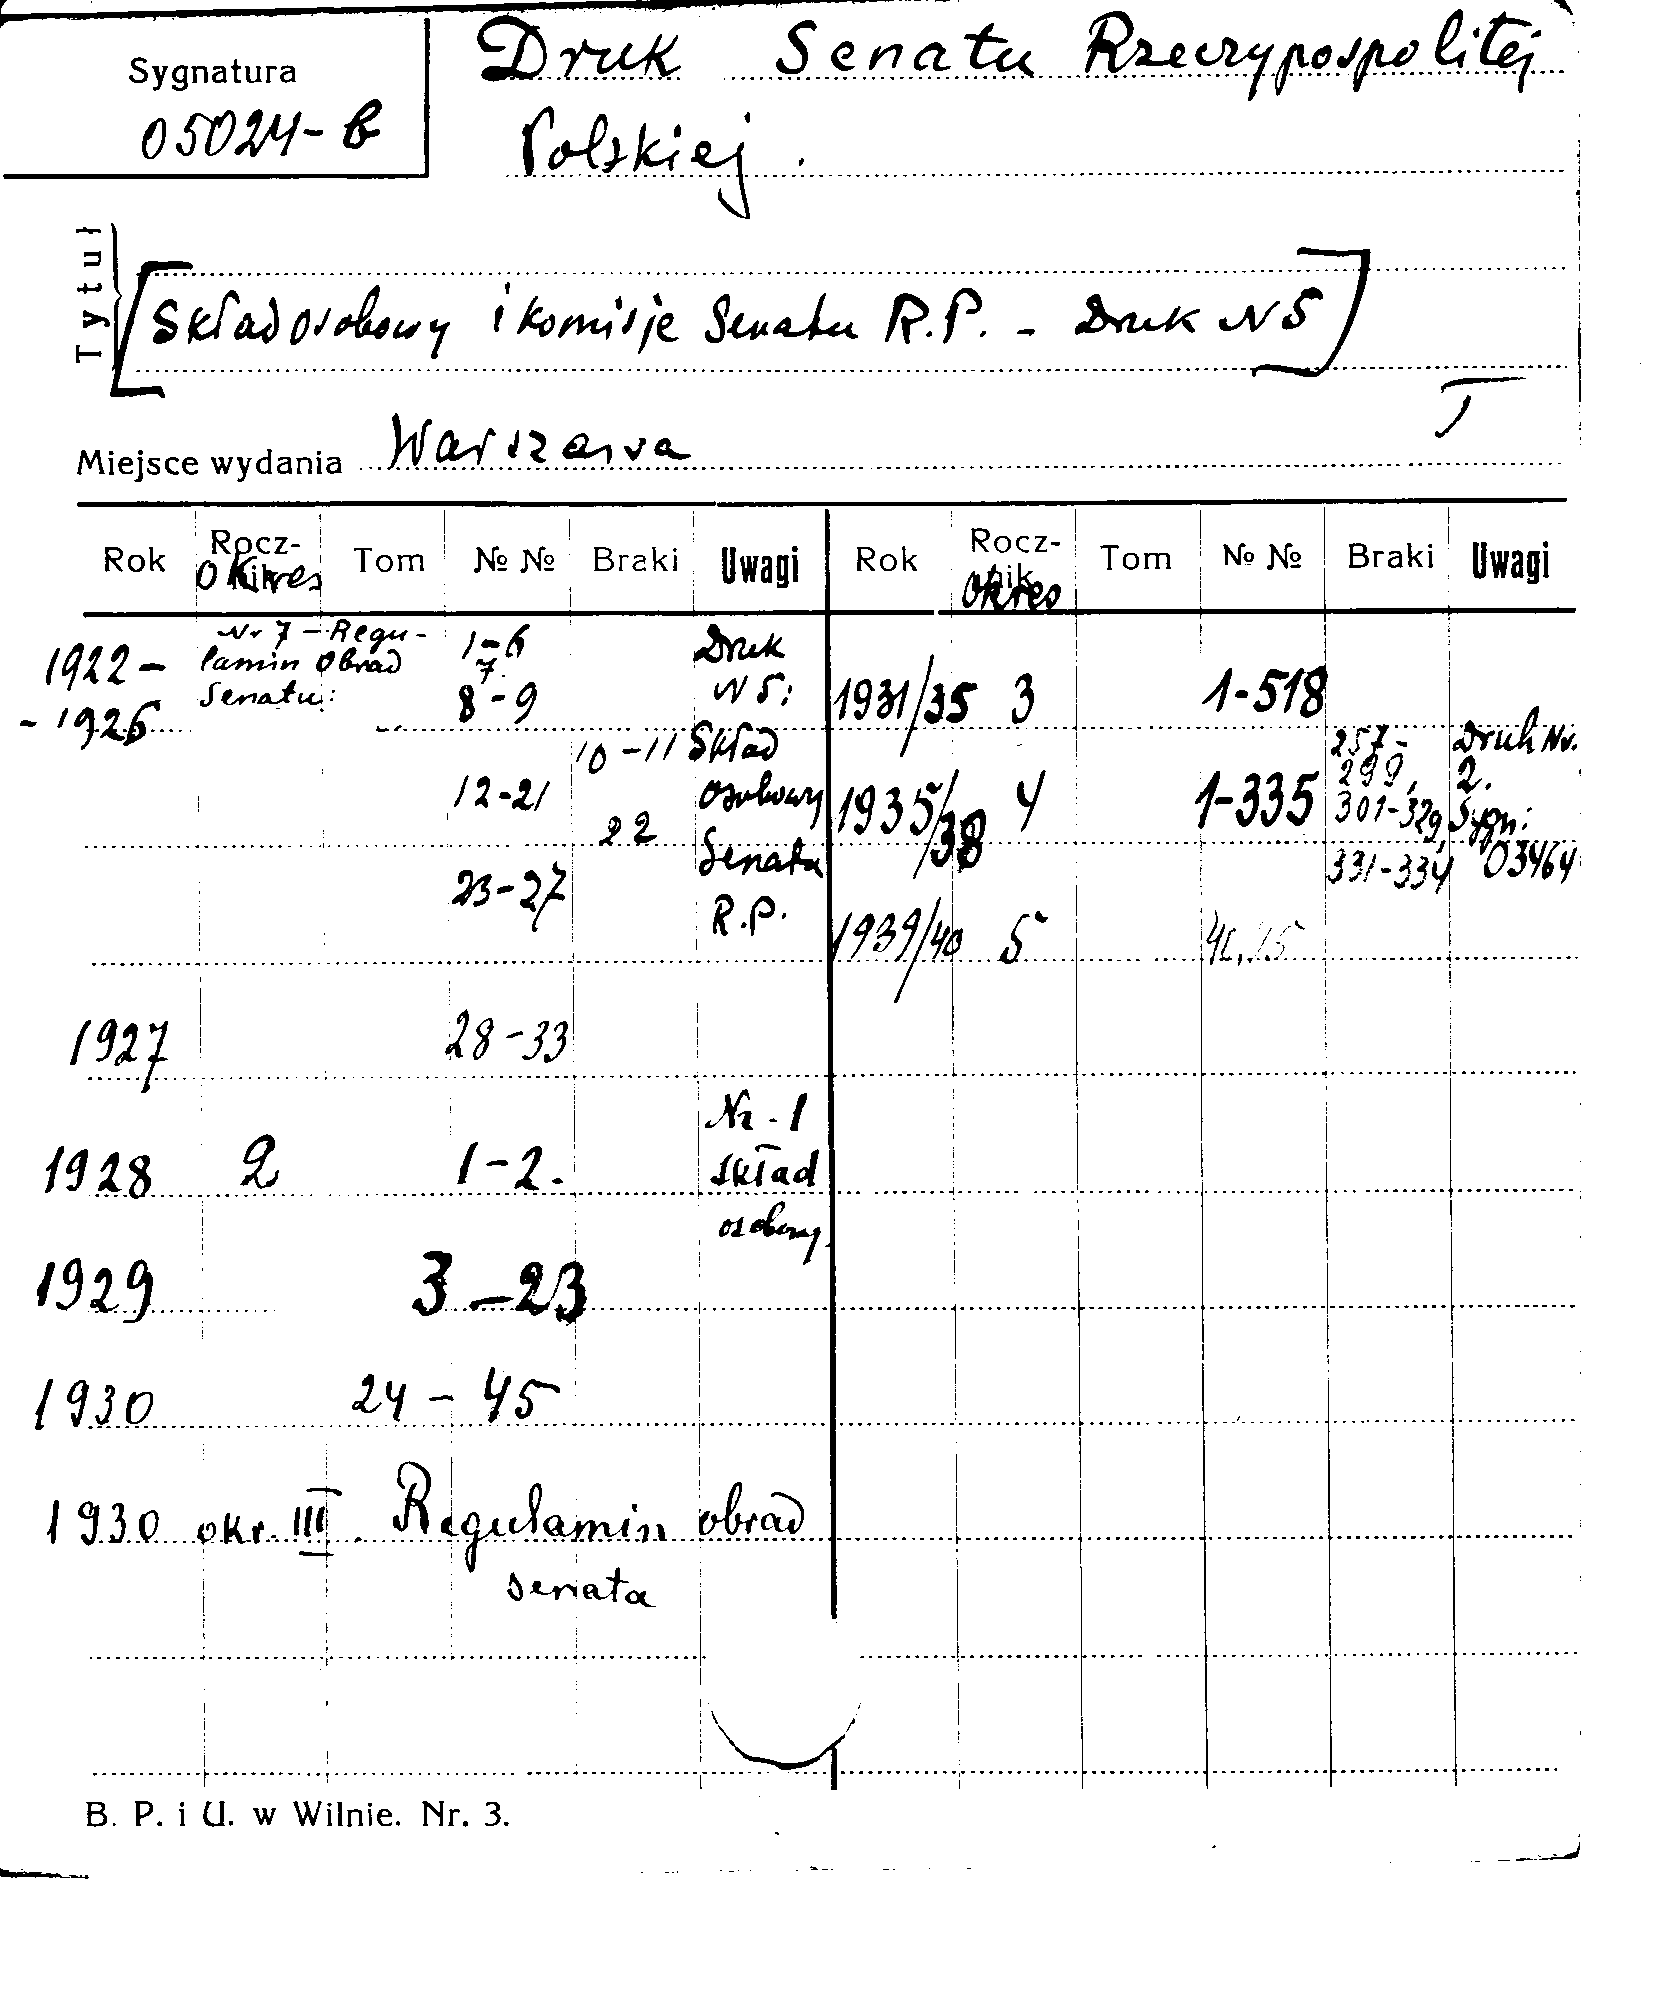 Sygnatura
05024-B
Druk Senatu Rzeczypospolitej
Polskiej.
Tytuł
[Skład osobowy i komisje Senatu R.P. - Druk N 5]
I
Miejsce wydania Warszawa
Rok Rocz- Tom № № Braki Uwagi Rok Rocz- Tom № № Braki Uwagi
nik okres nik okres
1922 - Nr 7 - Regu- 1-6 Druk
lamin obrad 7
- 1926 Senatu: 8-9 N 5: 1931/35 3 1-518
10-11 Skład 257- Druk Nr.
12-21 osobowy 1935/38 4 1-335 299, 2.
22 301-329, Sygn:
Senatu 331-334 03464
23-27 R.P. 1939/40 5
1927 28-33
Nr. 1
1928 2 1-2. skład
osobowy.
1929 3-23
1930 24 - 45
1930 okr. III. Regulamin obrad
senata
B. P. i U. w Wilnie. Nr. 3.